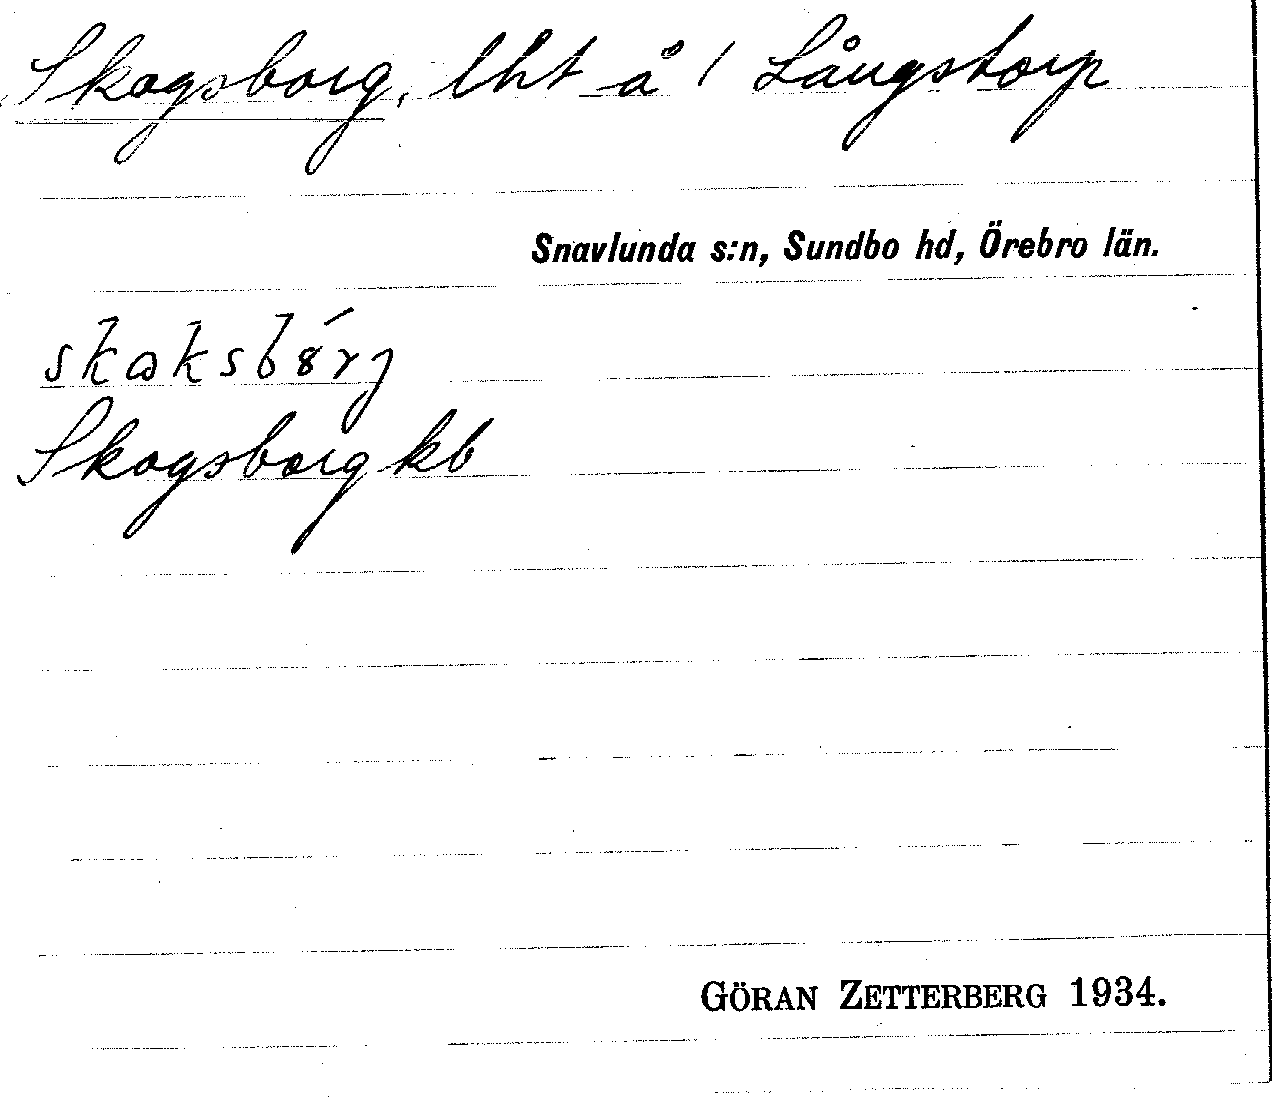 Skogsborg, lht å 1 Långstorp
Snavlunda s:n, Sundbo hd, Örebro län.
Skogsborg kb
GÖRAN ZETTERBERG 1934.